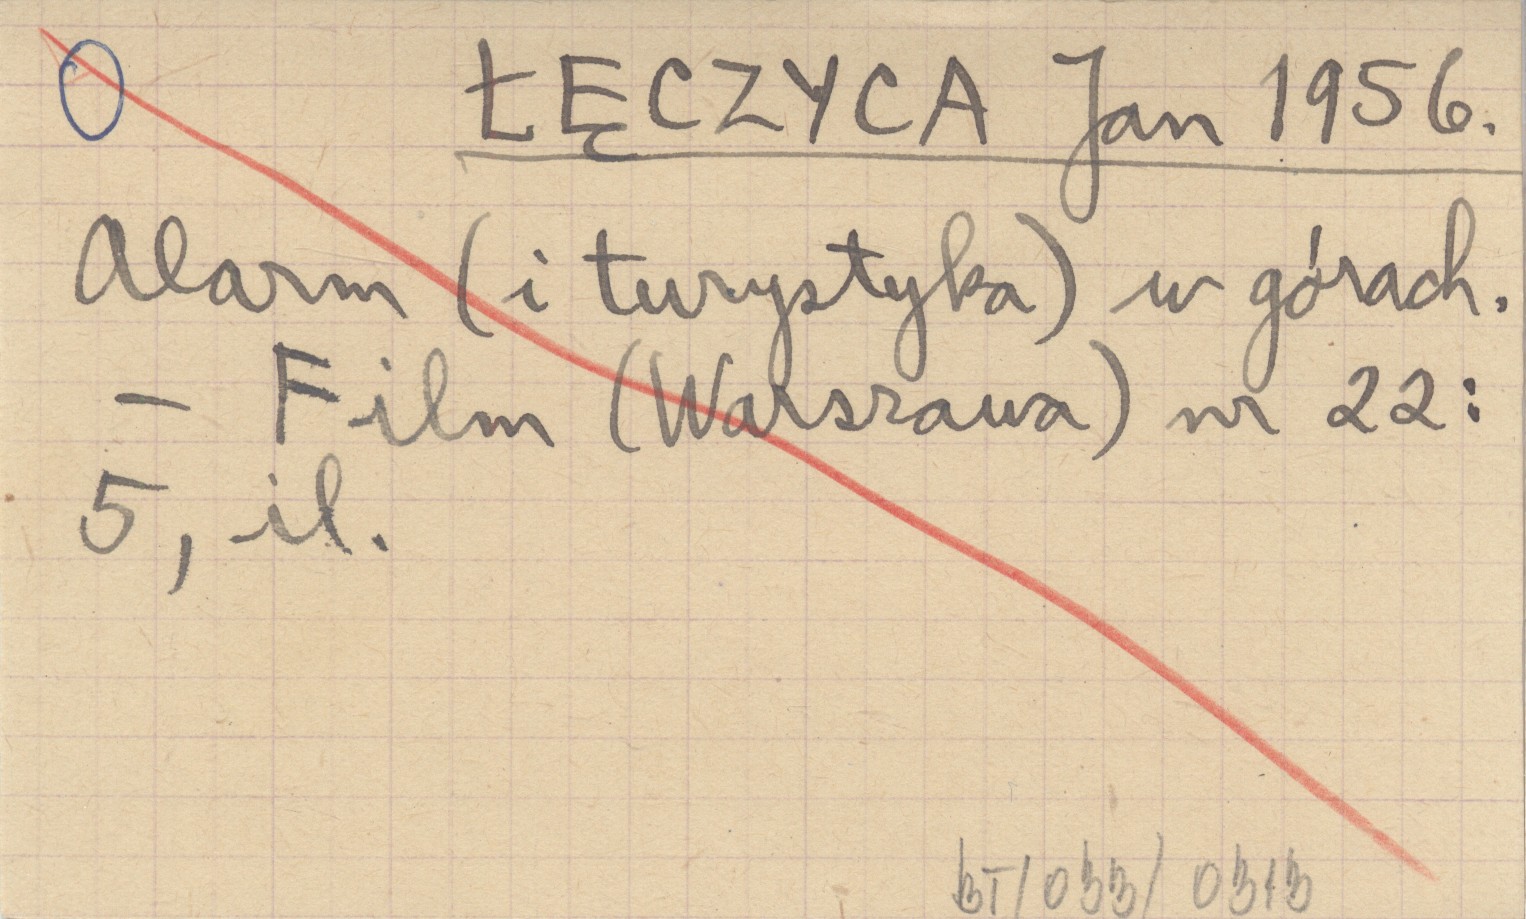 ŁĘCZYCA Jan 1956.
Alarm (i turystyka) w górach.
– Film (Warszawa) nr 22:
5, il.
BT/033/0313